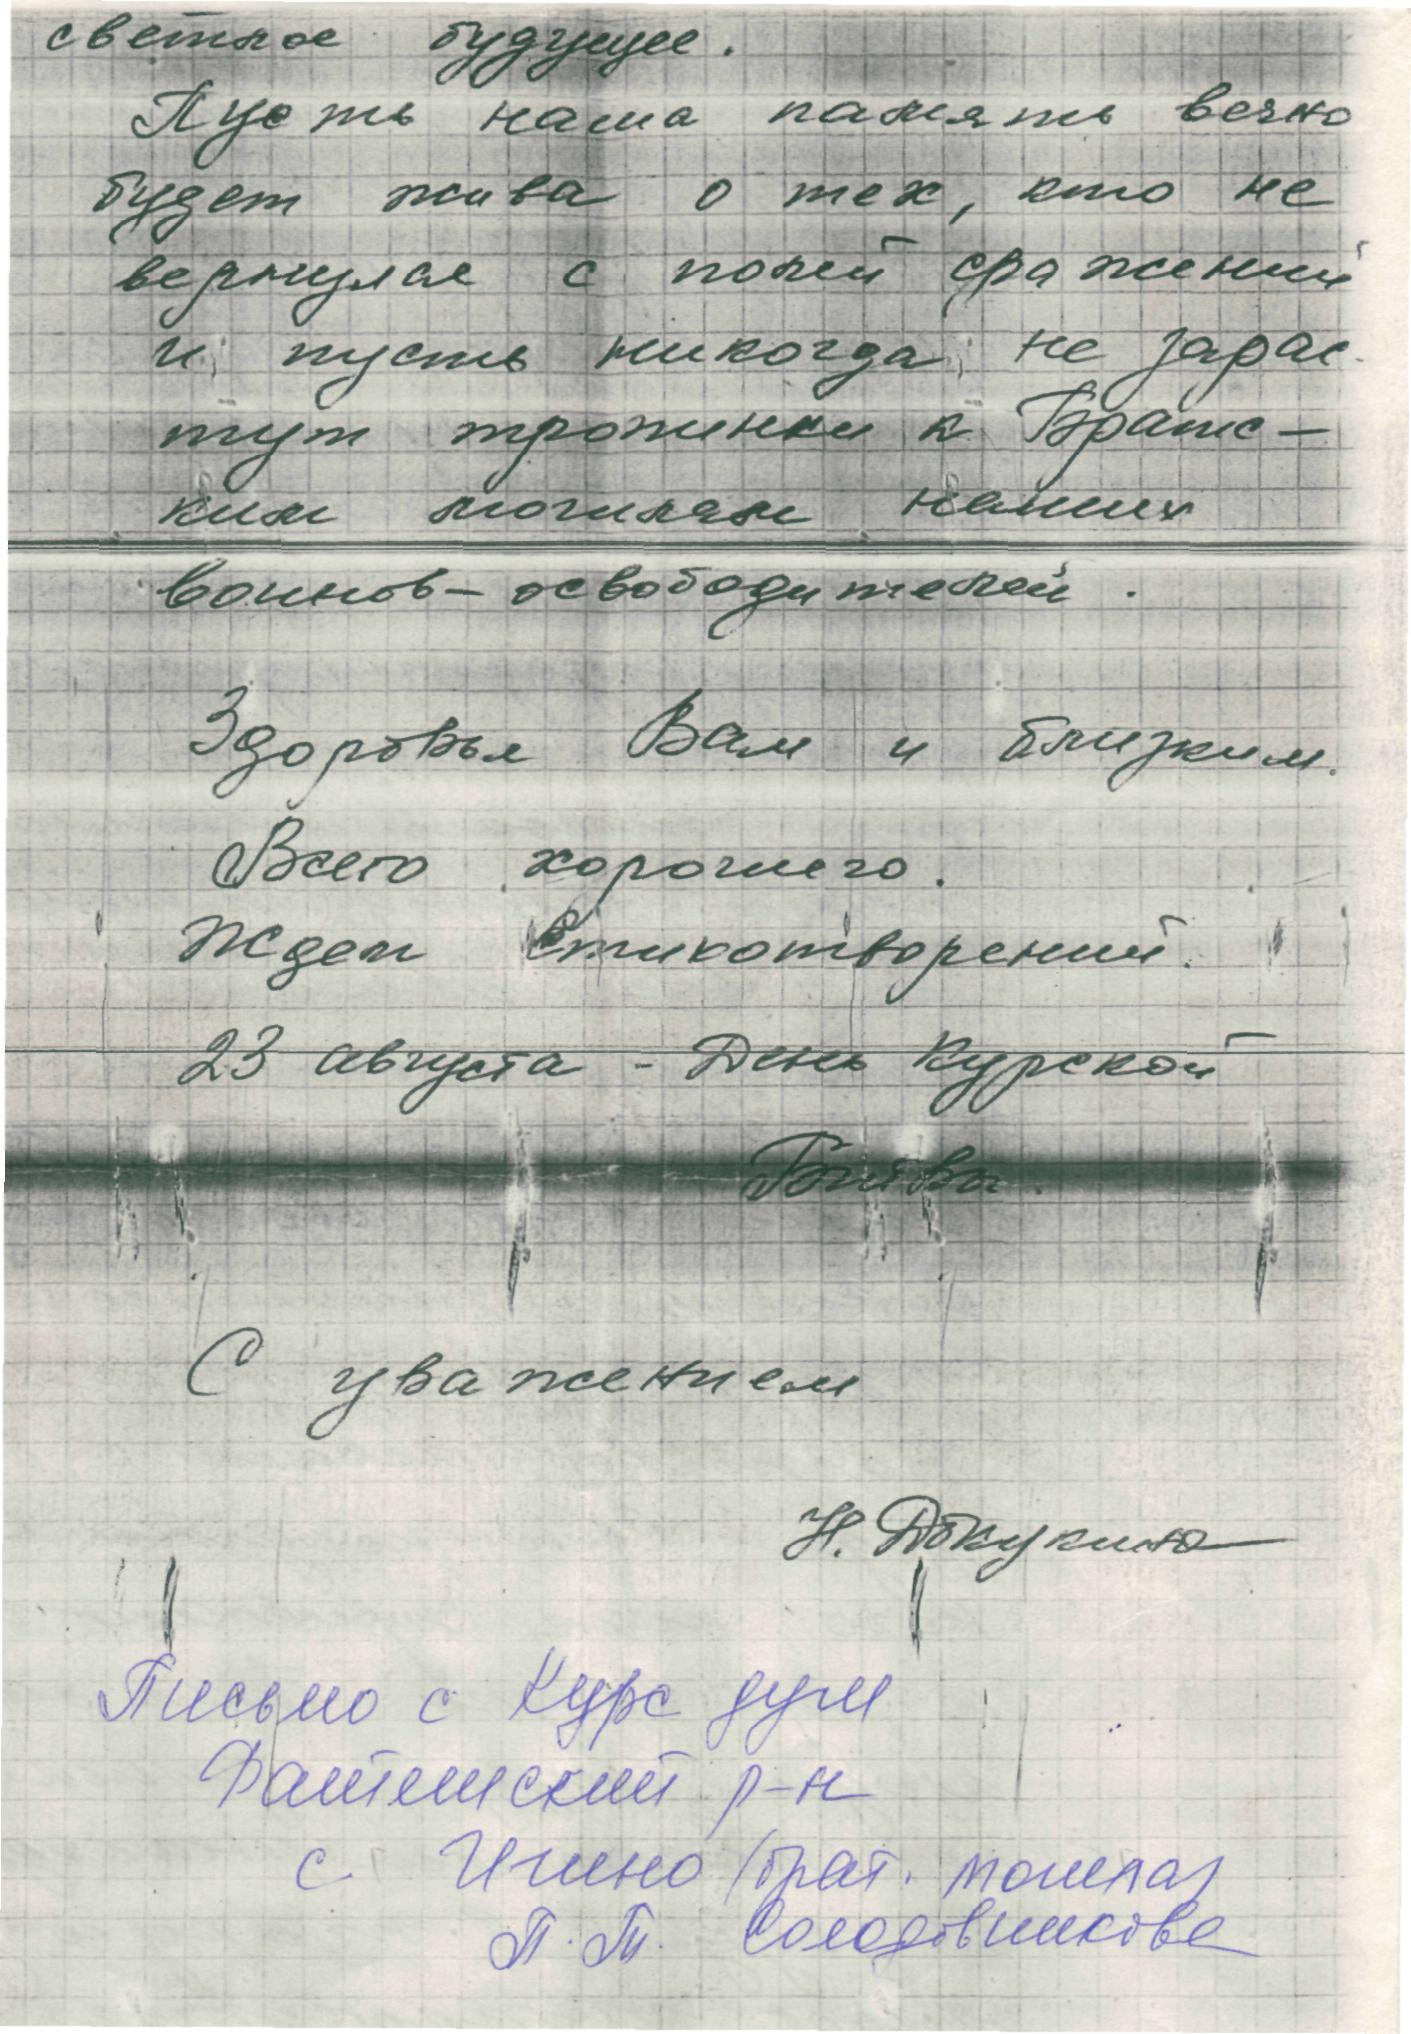 светлое будущее.
Пусть наша память вечно
будет жива о тех, кто не
вернулся с полей сражений
и пусть никогда не зарас
тут тропинки к Братс-
ким могилам наших
воинов-освободителей.
Здоровья Вам и близким.
Всего хорошего.
Ждем Стихотворений.
23 августа - День Курской
Битвы.
С уважением
Н. Докукина
Письмо с Курс дуги
Фатежский р-н
с. Игино (брат. могила)
П. Т. Солодовникова